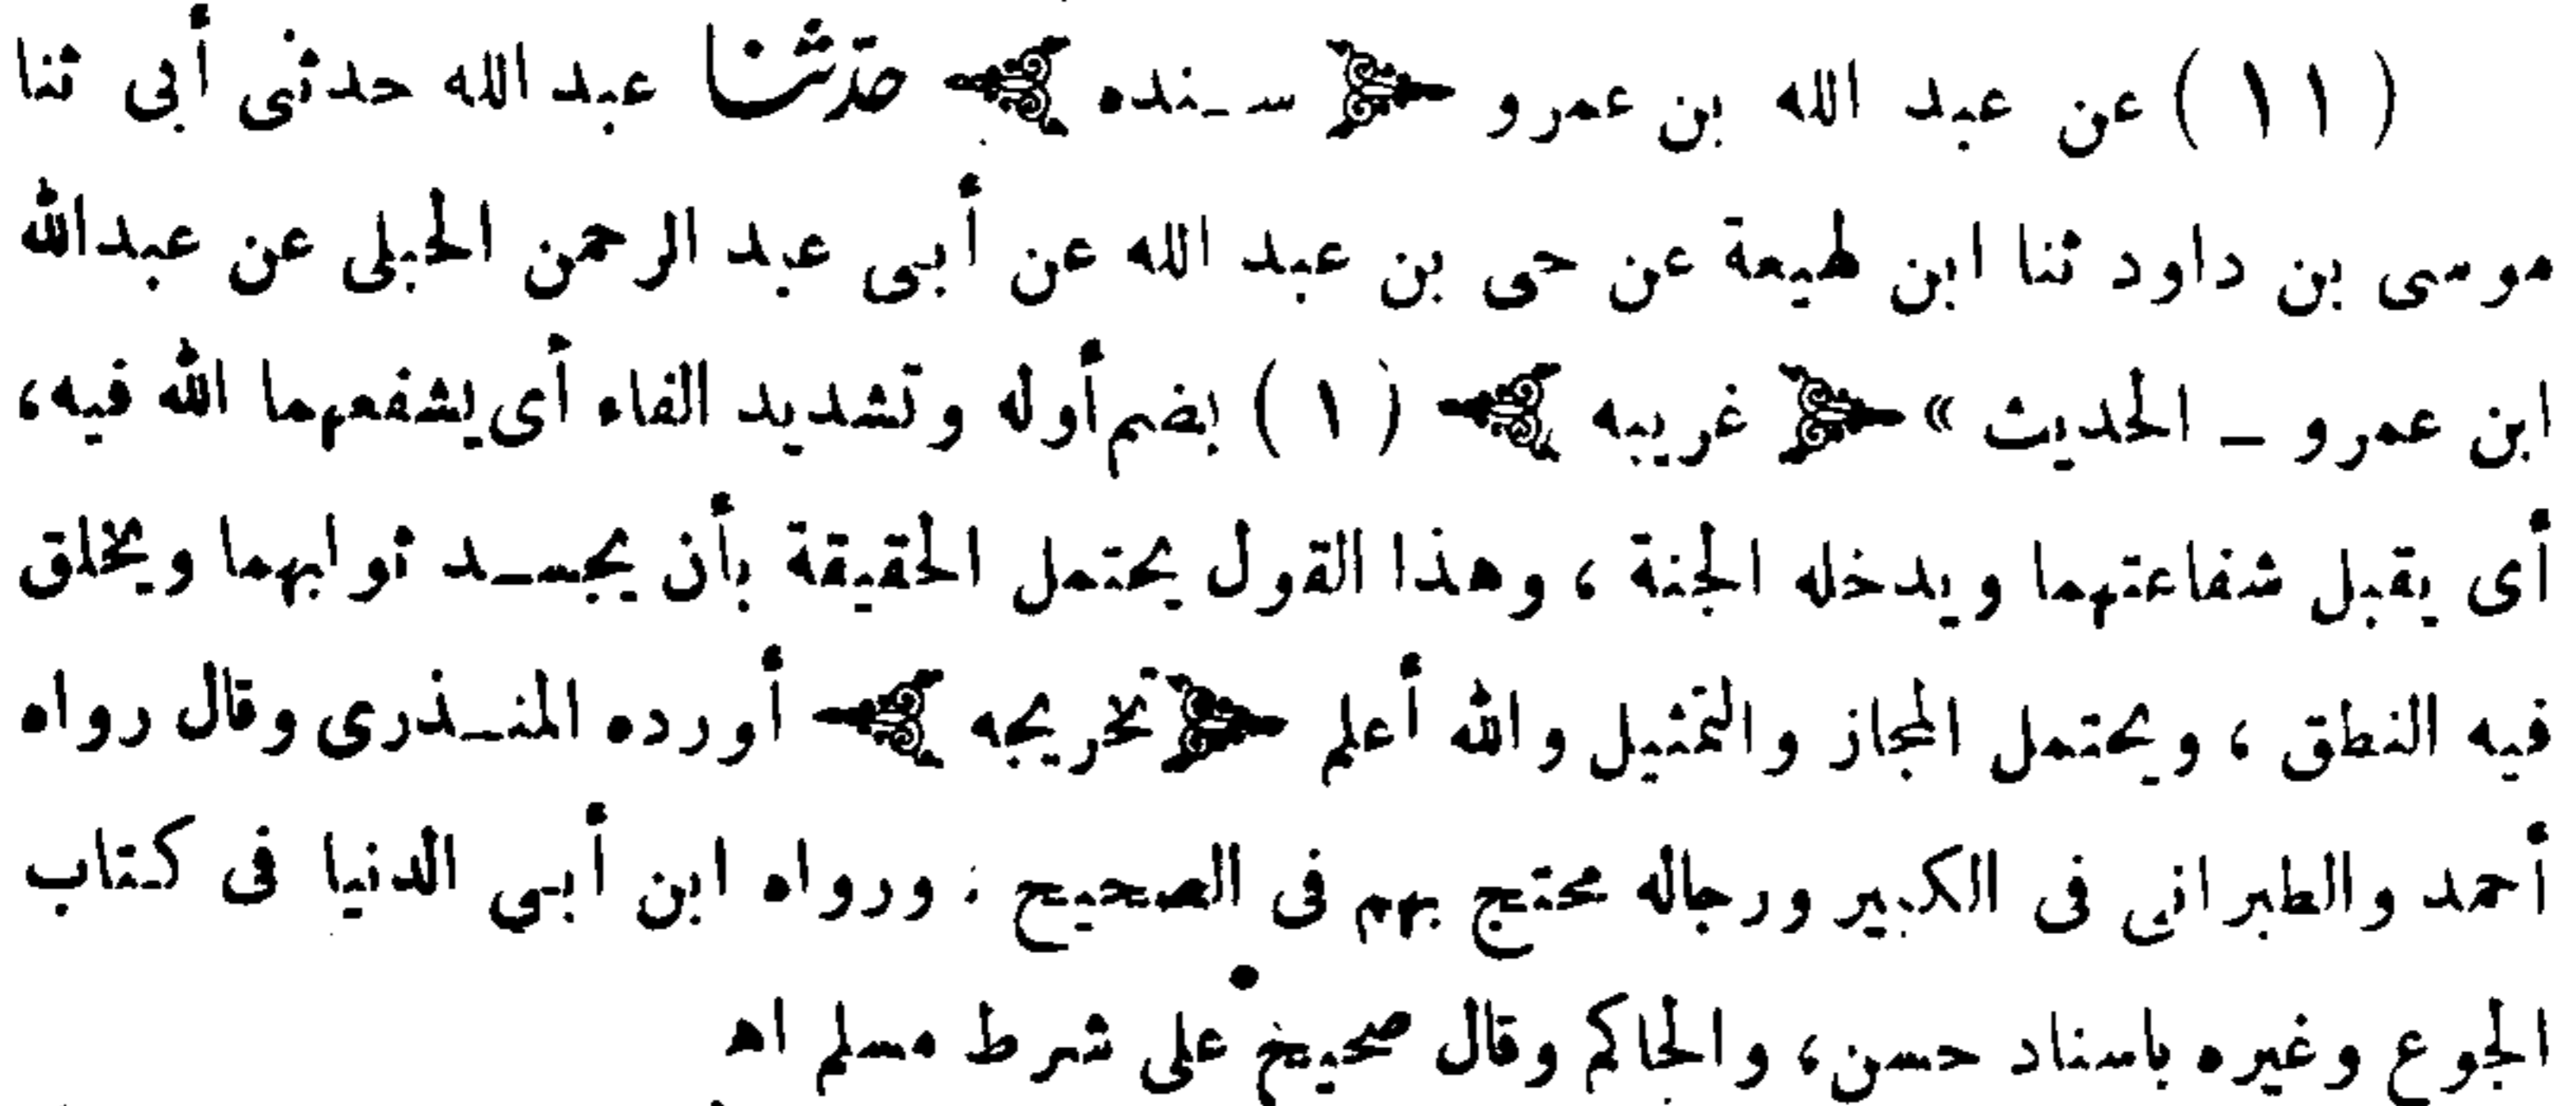 (١١) عن عبد الله بن عمرو ﴿ سنده ﴾ حدّثنا عبد الله حدثنى أبى ثنا
موسى بن داود ثنا ابن لهيعة عن حى بن عبد الله عن أبى عبد الرحمن الحبلى عن عبدالله
ابن عمرو ـ الحديث » ﴿ غريبه ﴾ (١) بضم أوله وتشديد الفاء أى يشفعهما الله فيه،
أى يقبل شفاعتهما ويدخله الجنة ، وهذا القول يحتمل الحقيقة بأن يجسد ثوابهما ويخلق
فيه النطق ، ويحتمل المجاز والتمثيل والله أعلم ﴿ تخريجه ﴾ أورده المنذرى وقال رواه
أحمد والطبرانى فى الكبير ورجاله محتج بهم فى الصحيح : ورواه ابن أبى الدنيا فى كتاب
الجوع وغيره باسناد حسن، والحاكم وقال صحيح على شرط مسلم اهـ